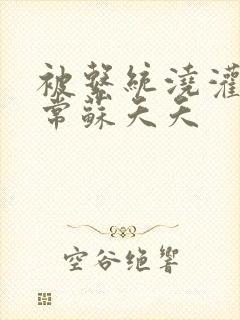 被繫統澆灌
常蘇夭夭
空谷绝響